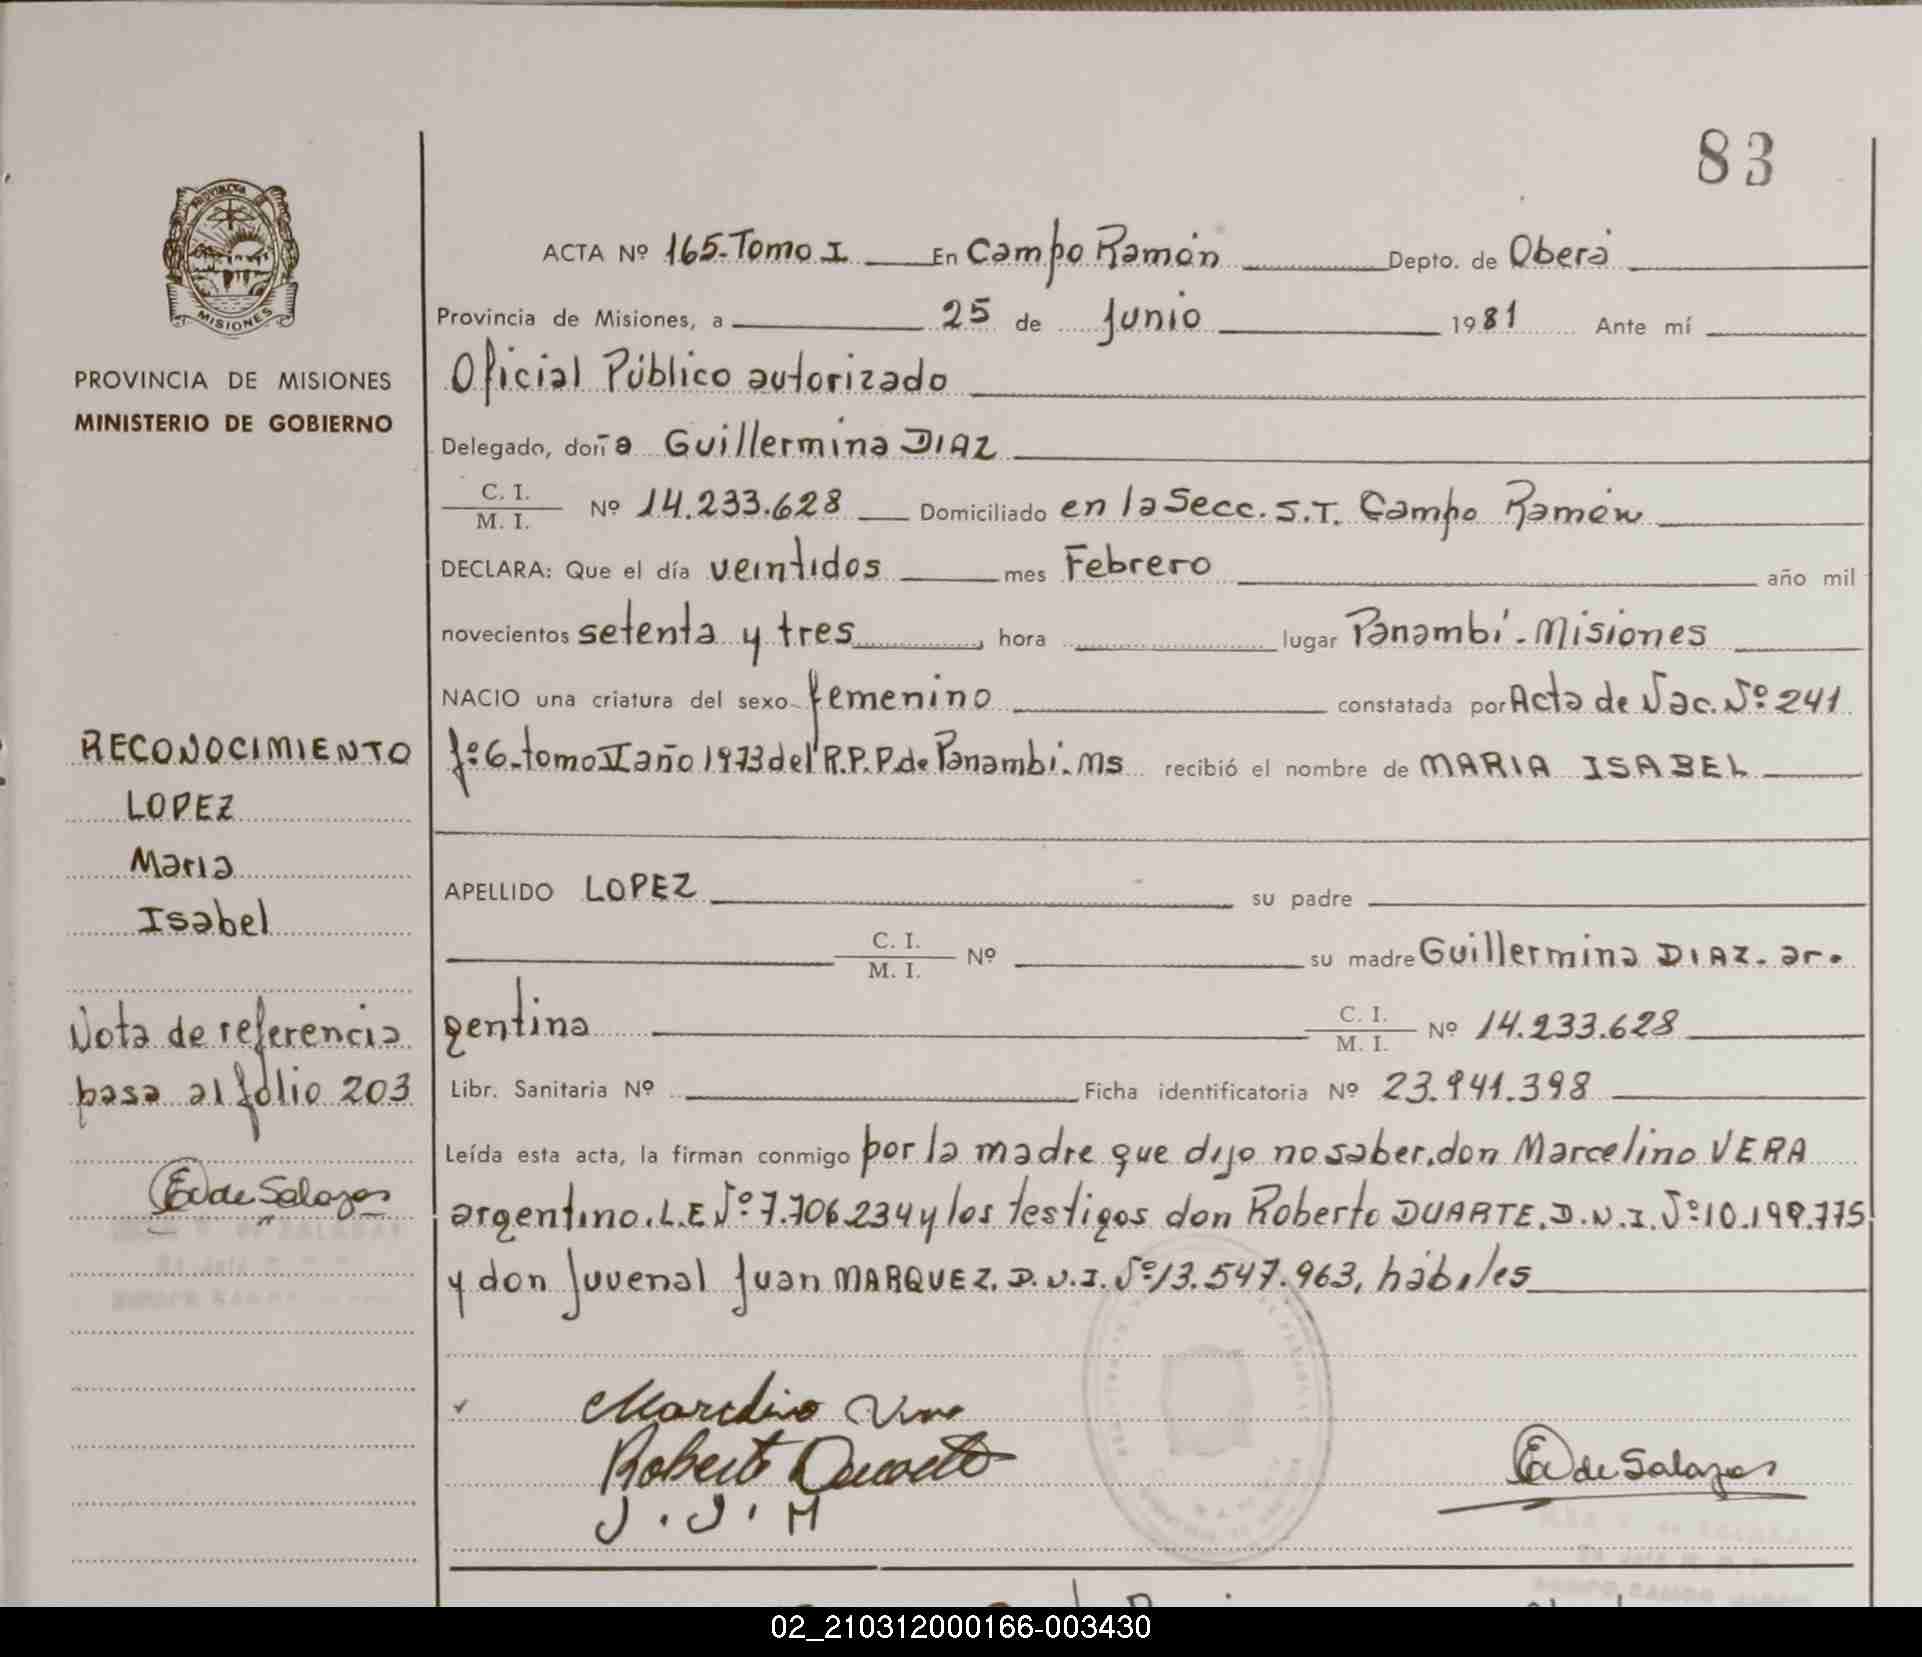 83
ACTA Nº 165-Tomo I En Campo Ramón Depto. de Oberá
Provincia de Misiones, a 25 de Junio 1981 Ante mí
PROVINCIA DE MISIONES
MINISTERIO DE GOBIERNO
Oficial Público autorizado
Delegado, doña Guillermina DIAZ
C. I.
M. I. Nº 14.233.628 Domiciliado en la Secc. S.T. Campo Ramón
DECLARA: Que el día veintidos mes Febrero año mil
novecientos setenta y tres, hora lugar Panambí - Misiones
NACIO una criatura del sexo femenino constatada por Acta de Nac. Nº 241
fº 6. tomo II año 1973 del R.P.P. de Panambí. Ms recibió el nombre de MARIA ISABEL
RECONOCIMIENTO
LOPEZ
Maria
Isabel
APELLIDO LOPEZ su padre
C. I.
M. I. Nº su madre Guillermina DIAZ. ar-
gentina C. I.
M. I. Nº 14.233.628
Nota de referencia
pasa al folio 203
Libr. Sanitaria Nº Ficha identificatoria Nº 23.941.398
Leída esta acta, la firman conmigo por la madre que dijo no saber, don Marcelino VERA
argentino. L.E Nº 7.706.234 y los testigos don Roberto DUARTE. D.N.I. Nº 10.199.775
y don Juvenal Juan MARQUEZ. D.N.I. Nº 13.547.963, hábiles
Marcelino Vera
Roberto Duarte
J. J. M
de Salazar
de Salazar
02_210312000166-003430